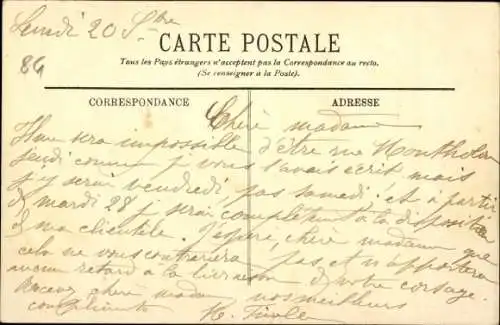 Lundi 20 S^bre
86
CARTE POSTALE
Tous les Pays étrangers n'acceptent pas la Correspondance au recto.
(Se renseigner à la Poste).
CORRESPONDANCE
ADRESSE
Chère madame
Il me sera impossible d'être rue Montholon
jeudi comme je vous l'avais écrit mais
j'y serai vendredi, pas samedi, et à partir
de mardi 28 j. serai complètement à la disposition
de ma clientèle. J'espère, chère madame que
cela ne vous contrariera pas et n'apportera
aucun retard à la livraison de votre corsage.
Recevez, chère madame nos meilleurs
compliments